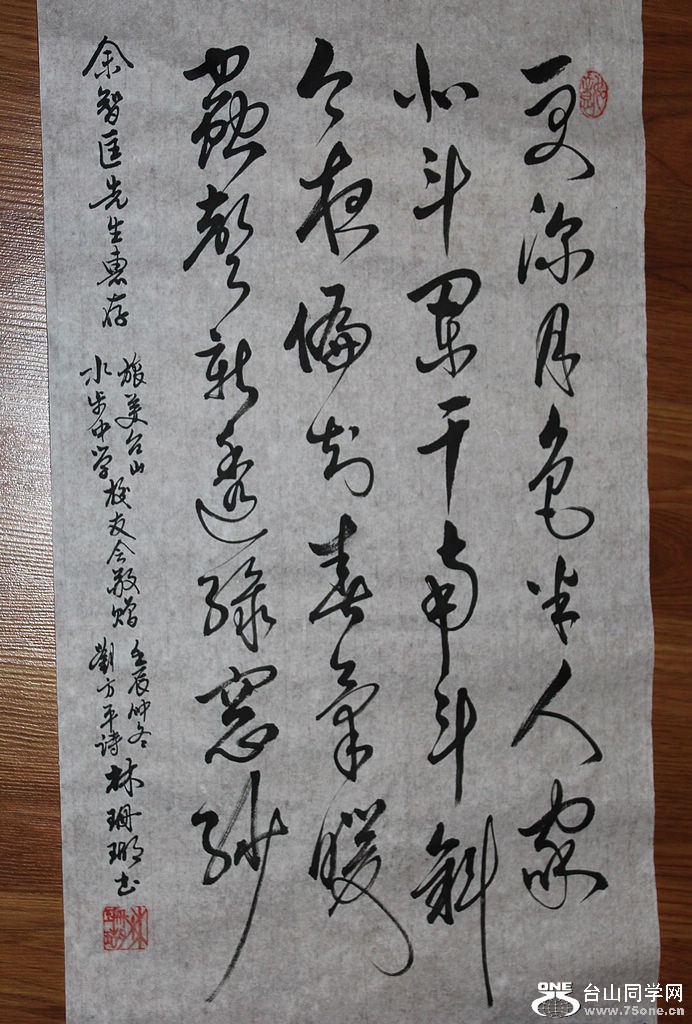 更深月色半人家
北斗闌干南斗斜
今夜偏知春氣暖
蟲聲新透綠窓紗
余智匡先生惠存
旅美台山
水步中学
校友会敬赠
壬辰仲冬
劉方平诗
林珊瑚书
ONE 台山同学网
www.75one.cn